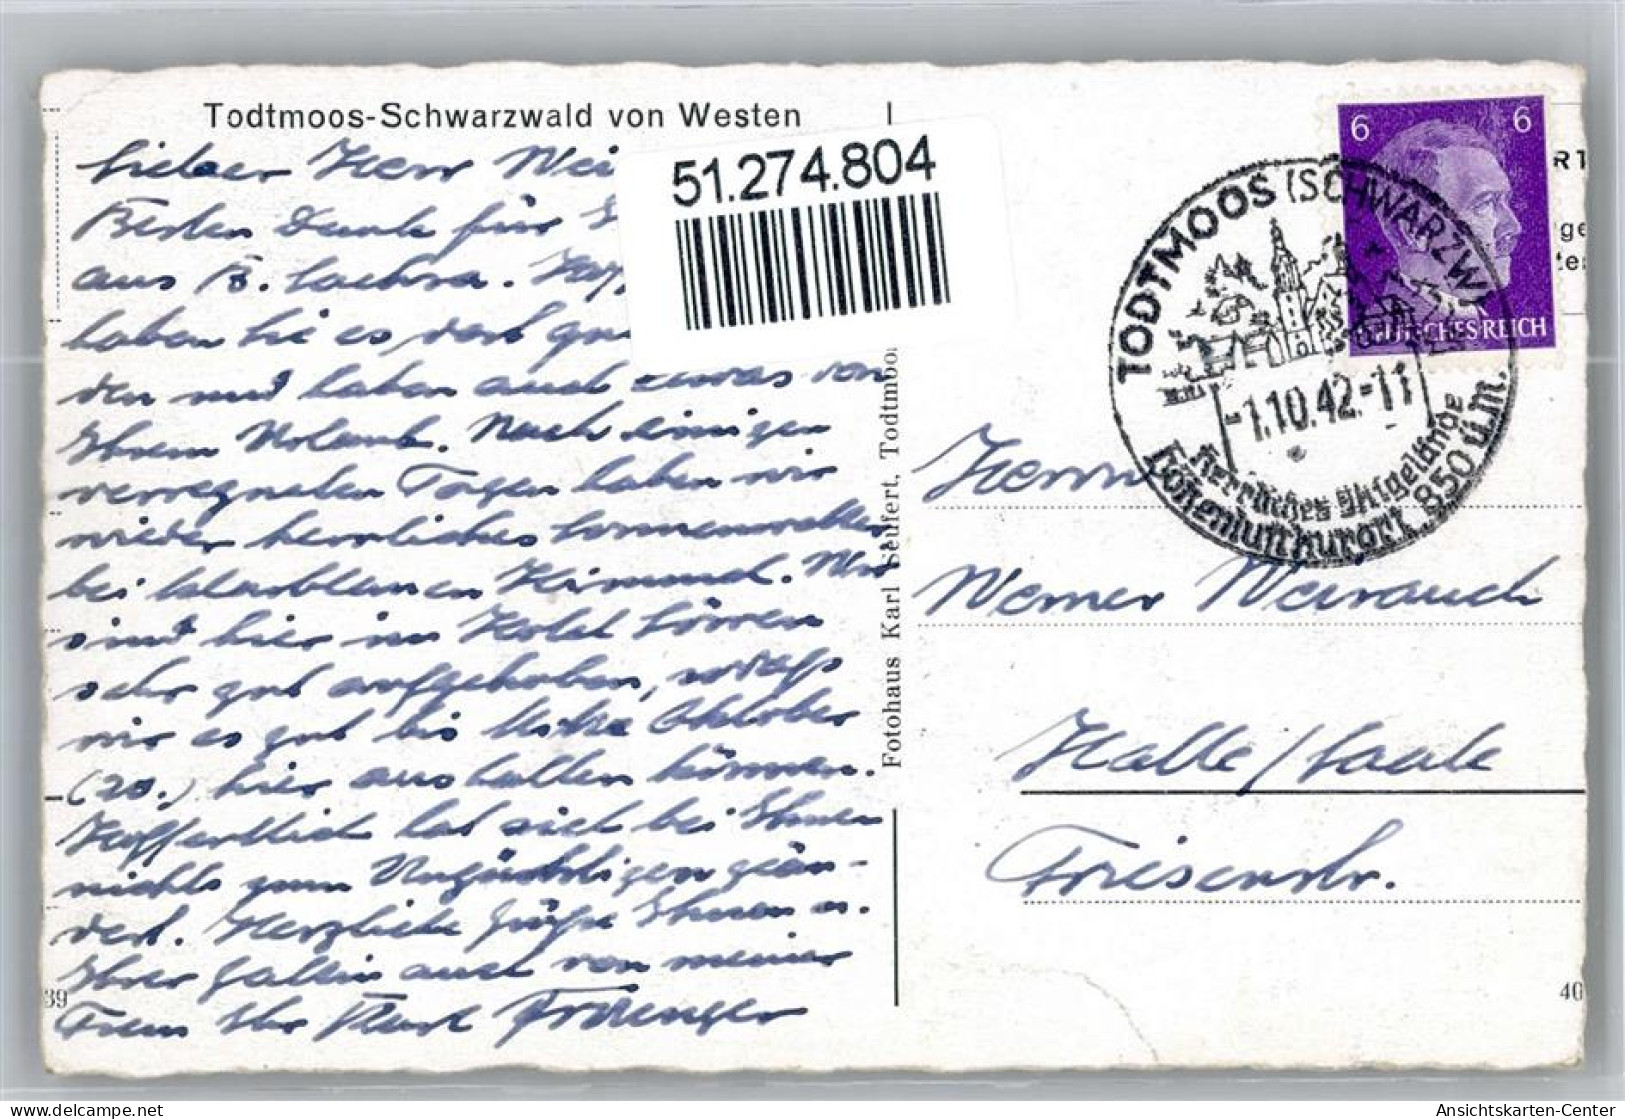 Todtmoos-Schwarzwald von Westen
51.274.804
Lieber Herr Wei
Besten Dank für
aus B. Sachsa.
haben Sie es dort
den und haben auch etwas von
Ihrem Urlaub. Nach einigen
verregneten Tagen haben wir
wieder herrliches Sonnenwetter
bei blaublauen Himmel. Wir
sind hier im Hotel Löwen
sehr gut aufgehoben, sodaß
wir es gut bis Mitte Oktober
(20.) hier aushalten können.
Hoffentlich hat sich bei Ihnen
nichts zum Ungünstigen geän-
dert. Herzliche Grüße Ihnen u.
Ihrer Gattin auch von meiner
Frau Ihr Karl
39
Fotohaus Karl Seufert, Todtmoo
6 6
DEUTSCHES REICH
TODTMOOS (SCHWARZW)
-1.10.42.-11
Herrliches Skigelände
Höhenluftkurort 850 ü.M.
RT
Herrn
Werner Weirauch
Halle/Saale
Friesenstr.
40
Ansichtskarten-Center